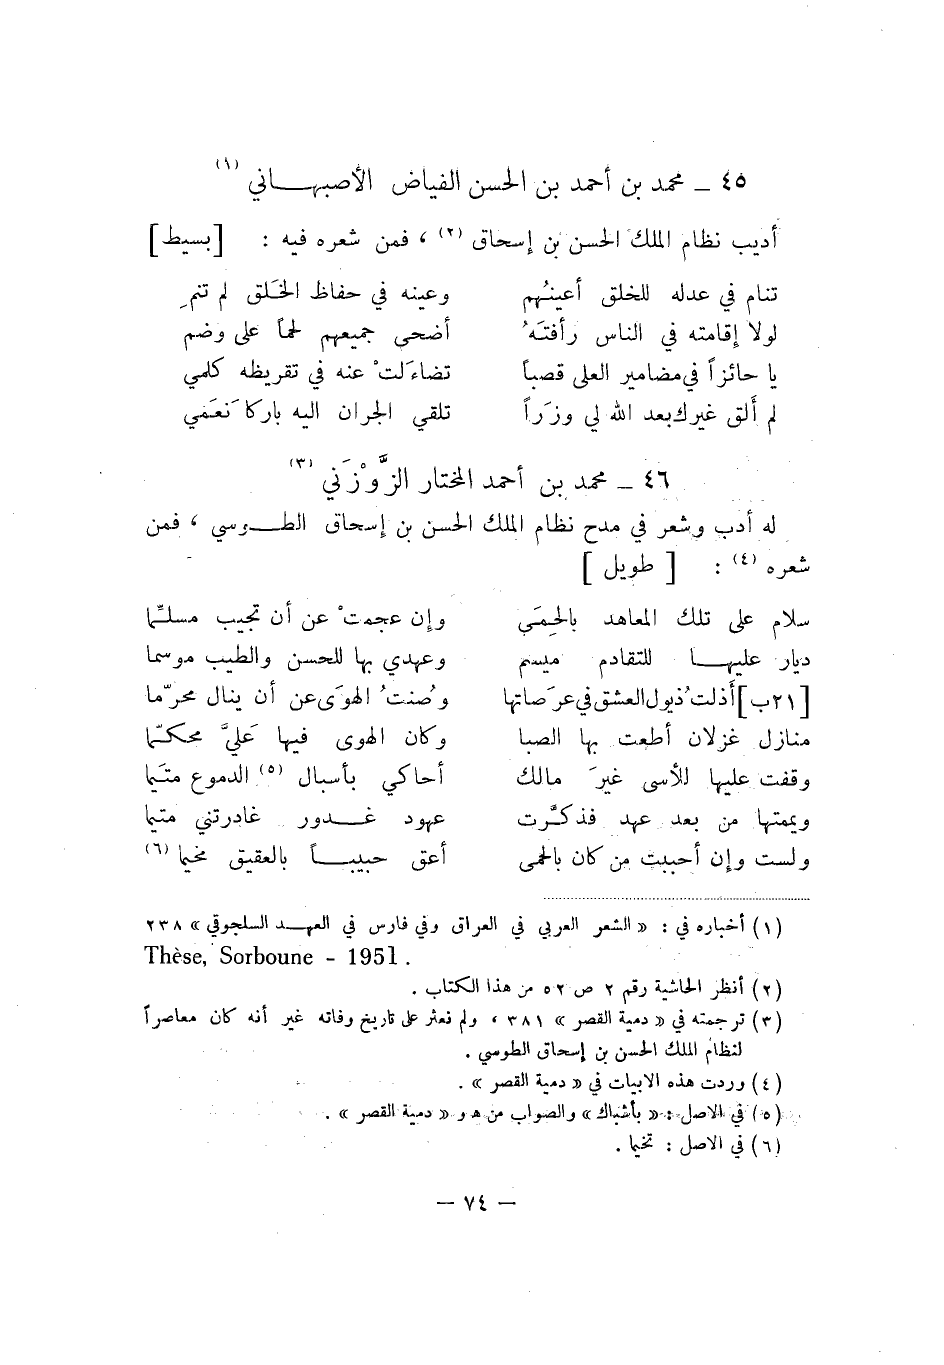 ٤٥ ــ محمد بن أحمد بن الحسن الفياض الأصبهـــاني (١)
أديب نظام الملك الحسن بن إسحاق (٢) ، فمن شعره فيه : [بسيط]
تنام في عدله للخلق أعينُهم وعينه في حفاظ الخَلق لم تنمِ
لولا إقامته في الناس رأفتَهُ أضحى جميعهم لحماً على وضم
يا حائزاً في مضامير العلى قصباً تضاءَلتْ عنه في تقريظه كلمي
لم أَلق غيرك بعد الله لي وزَراً تلقي الجران اليه باركا نَعَمي
٤٦ ــ محمد بن أحمد المختار الزَّوْزَني (٣)
له أدب وشعر في مدح نظام الملك الحسن بن إسحاق الطـــوسي ، فمن
شعره (٤) : [ طويل ]
سلام على تلك المعاهد بالحِمَى وإن عجمتْ عن أن تجيب مسلـّما
ديار عليهـــا للتقادم ميسم وعهدي بها للحسن والطيب موسما
[٢١ب] أَذلتُ ذيول العشق في عرَصاتها وصُنتُ الهوَى عن أن ينال محرّما
منازل غزلان أطعت بها الصبا وكان الهوى فيها عَليَّ محكـّما
وقفت عليها للأسى غيرَ مالك أحاكي بأسبال (٥) الدموع متيَّما
ويممتها من بعد عهد فذكـَّرت عهود غـــدور غادرتني متيما
ولست وإن أحببت من كان بالحمى أعق حبيبـــاً بالعقيق مخيما (٦)
(١) أخباره في : « الشعر العربي في العراق وفي فارس في العهـــد السلجوقي » ٢٣٨
Thèse, Sorboune - 1951 .
(٢) أنظر الحاشية رقم ٢ ص ٥٢ من هذا الكتاب .
(٣) ترجمته في « دمية القصر » ٣٨١ ، ولم نعثر على تاريخ وفاته غير أنه كان معاصراً
لنظام الملك الحسن بن إسحاق الطوسي .
(٤) وردت هذه الابيات في « دمية القصر » .
(٥) في الاصل : « بأشباك » والصواب من ه و « دمية القصر » .
(٦) في الاصل : تخيما .
— ٧٤ —